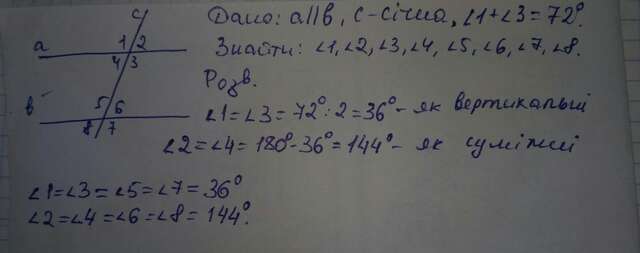 c
Дано: a||b, c-січна, ∠1+∠3=72°.
a
1 2
4 3
Знайти: ∠1, ∠2, ∠3, ∠4, ∠5, ∠6, ∠7, ∠8.
Розв.
в
5 6
8 7
∠1=∠3=72°:2=36°- як вертикальні
∠2=∠4=180°-36°=144°- як суміжні
∠1=∠3=∠5=∠7=36°
∠2=∠4=∠6=∠8=144°.